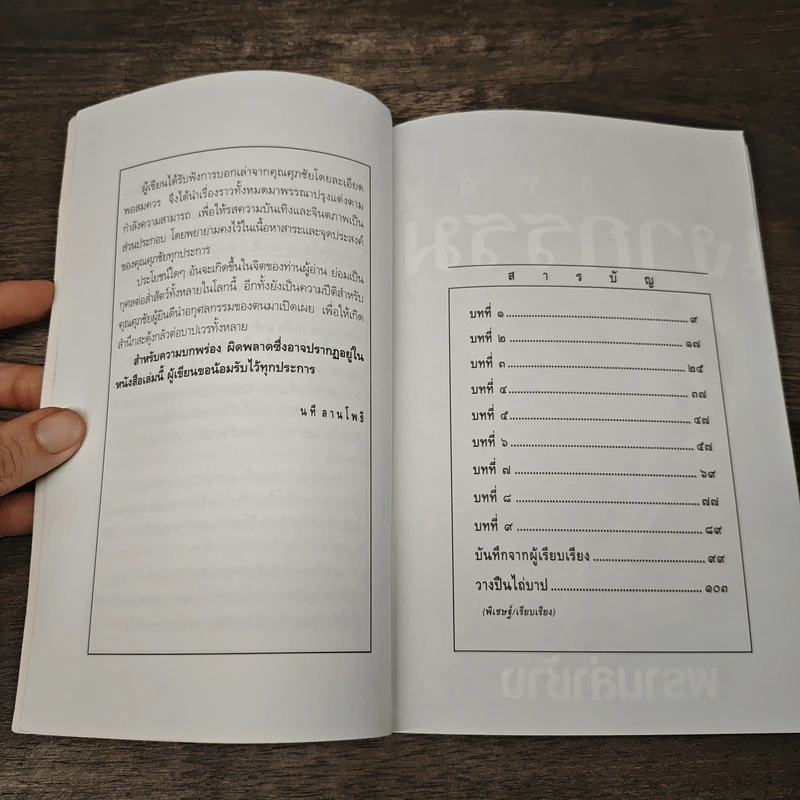 ผู้เขียนได้รับฟังการบอกเล่าจากคุณศุภชัยโดยละเอียด
พอสมควร จึงได้นำเรื่องราวทั้งหมดมาพรรณาปรุงแต่งตาม
กำลังความสามารถ เพื่อให้รสความบันเทิงและจินตภาพเป็น
ส่วนประกอบ โดยพยายามคงไว้ในเนื้อหาสาระและจุดประสงค์
ของคุณศุภชัยทุกประการ
ประโยชน์ใดๆ อันจะเกิดขึ้นในจิตของท่านผู้อ่าน ย่อมเป็น
กุศลต่อส่ำสัตว์ทั้งหลายในโลกนี้ อีกทั้งยังเป็นความปีติสำหรับ
คุณศุภชัยผู้ยินดีนำอกุศลกรรมของตนมาเปิดเผย เพื่อให้เกิด
สำนึกสะดุ้งกลัวต่อบาปเวรทั้งหลาย
สำหรับความบกพร่อง ผิดพลาดซึ่งอาจปรากฏอยู่ใน
หนังสือเล่มนี้ ผู้เขียนขอน้อมรับไว้ทุกประการ
นที ลานโพธิ
สารบัญ
บทที่ ๑ ๙
บทที่ ๒ ๑๗
บทที่ ๓ ๒๕
บทที่ ๔ ๓๗
บทที่ ๕ ๔๗
บทที่ ๖ ๕๗
บทที่ ๗ ๖๙
บทที่ ๘ ๗๗
บทที่ ๙ ๘๙
บันทึกจากผู้เรียบเรียง ๙๙
วางปืนไถ่บาป ๑๐๓
(พิเชษฐ์/เรียบเรียง)